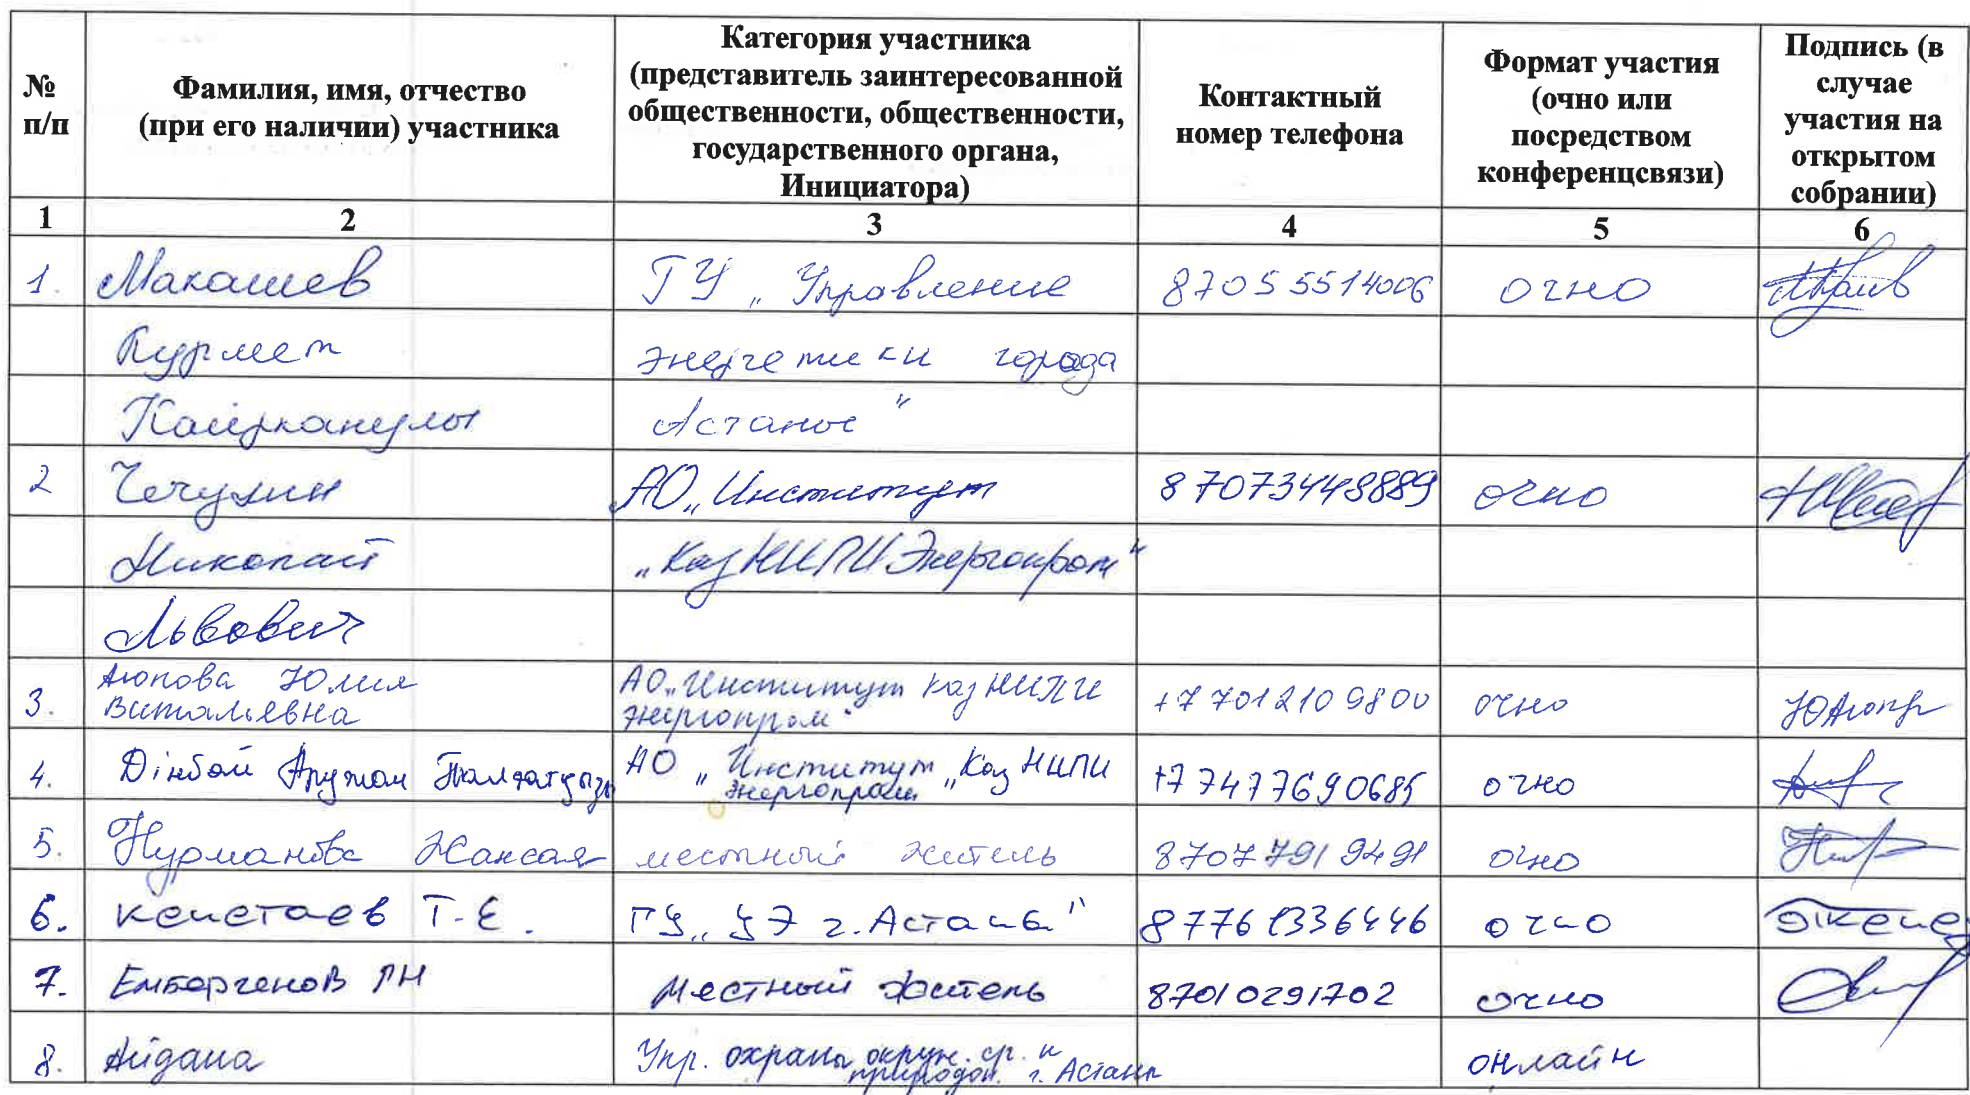 № п/п
Фамилия, имя, отчество
(при его наличии) участника
Категория участника
(представитель заинтересованной
общественности, общественности,
государственного органа,
Инициатора)
Контактный
номер телефона
Формат участия
(очно или
посредством
конференцсвязи)
Подпись (в
случае
участия на
открытом
собрании)
1 2 3 4 5 6
1. Макашев ГУ „Управление 87055514006 очно
Курмет энергетики города
Каирканулы Астаны"
2 Чечулин АО „Институт 87073448889 очно
Николай „КазНИПИЭнергопром"
Львович
3. Аюпова Юлия АО „Институт КазНИПИ +7 701 210 9800 очно
Витальевна Энергопром"
4. Дінбай Аружан Талғатқызы АО „Институт „КазНИПИ +77477690685 очно
Энергопром
5. Нурманова Жансая местный житель 8707 791 9491 очно
6. Кенстаев Т.Е. ГУ „УЭ г. Астаны" 87761336446 очно
7. Ембергенов РН Местный житель 87010291702 очно
8. Айдана Упр. охраны окруж. ср. и онлайн
природоп. г. Астаны